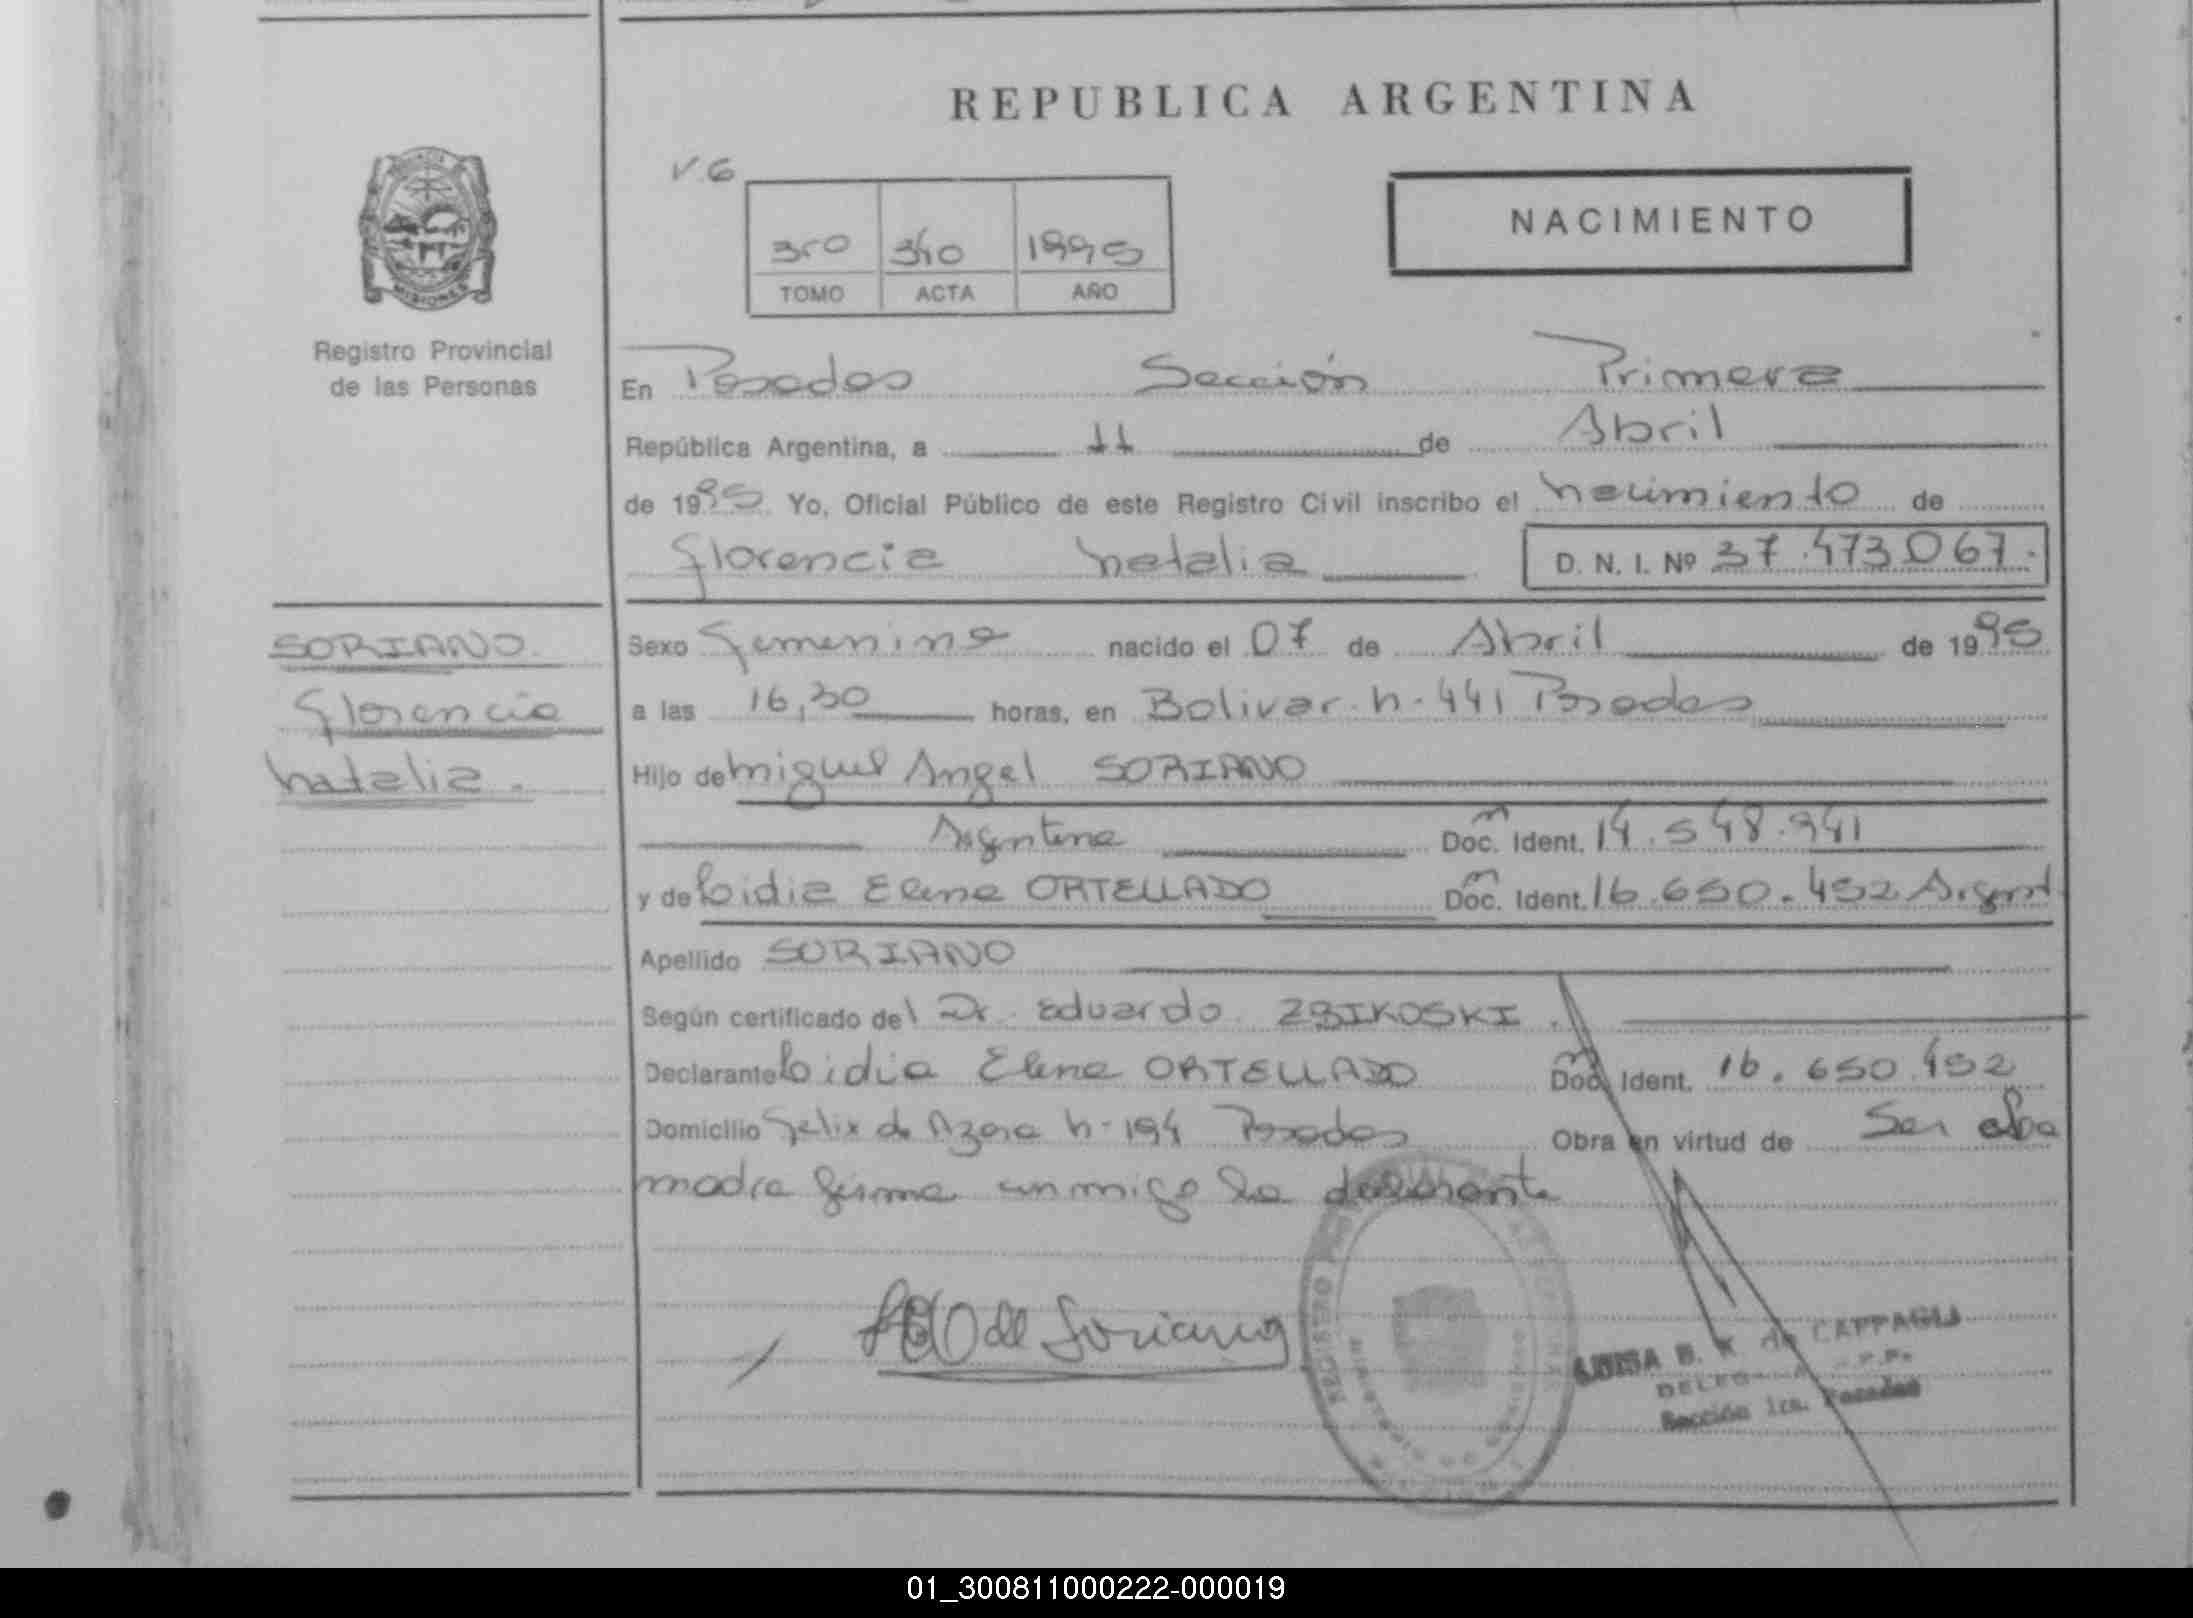 REPUBLICA ARGENTINA
V.6
3r0 340 1995
TOMO ACTA AÑO
NACIMIENTO
MISIONES
Registro Provincial
de las Personas
En Posadas Sección Primera
República Argentina, a 11 de Abril
de 1995. Yo, Oficial Público de este Registro Civil inscribo el nacimiento de
Florencia Natalia D. N. I. Nº 37.473067.
SORIANO
Florencia
Natalia.
Sexo Femenino nacido el 07 de Abril de 1995
a las 16,30 horas, en Bolivar N-441 Posadas
Hijo de Miguel Angel SORIANO
Argentina Doc. Ident. M 14.548.941
y de Lidia Elena ORTELLADO Doc. Ident. M 16.650.452 Argent
Apellido SORIANO
Según certificado del Dr. Eduardo ZBIKOSKI.
Declarante Lidia Elena ORTELLADO Doc. Ident. M 16.650.452
Domicilio Felix de Azara N-194 Posadas Obra en virtud de Ser la
madre firma conmigo la declarante
de Soriano
LUISA B. K de CAPPAGLI
Sección 1ra. Posadas
01_300811000222-000019